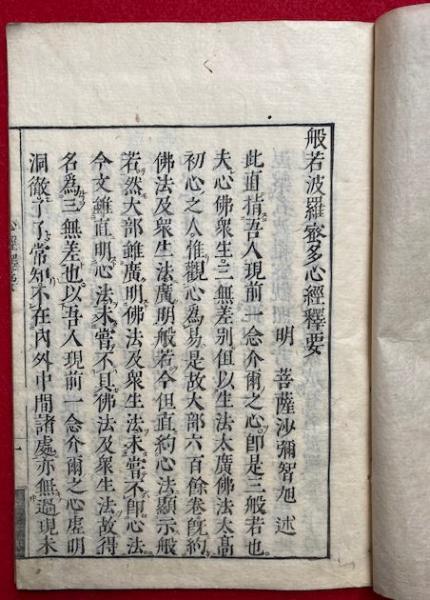 般若波羅蜜多心經釋要
明　菩薩沙彌智旭　述
此直指吾人現前一念介爾之心即是三般若也
夫心佛衆生三無差別但以生法太廣佛法太高
初心之人惟觀心為易是故大部六百餘卷既約
佛法及衆生法廣明般若今但直約心法顯示般
若然大部雖廣明佛法及衆生法未嘗不即心法
今文雖直明心法未嘗不具佛法及衆生法故得
名為三無差也以吾人現前一念介爾之心虛明
洞徹了了常知不在內外中間諸處亦無過現未